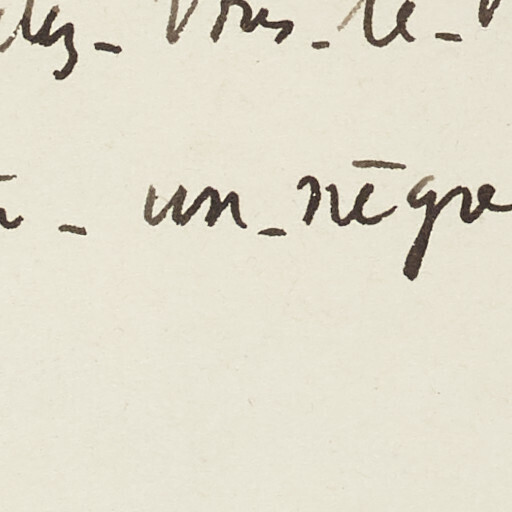 vous - le -
- un - nègre